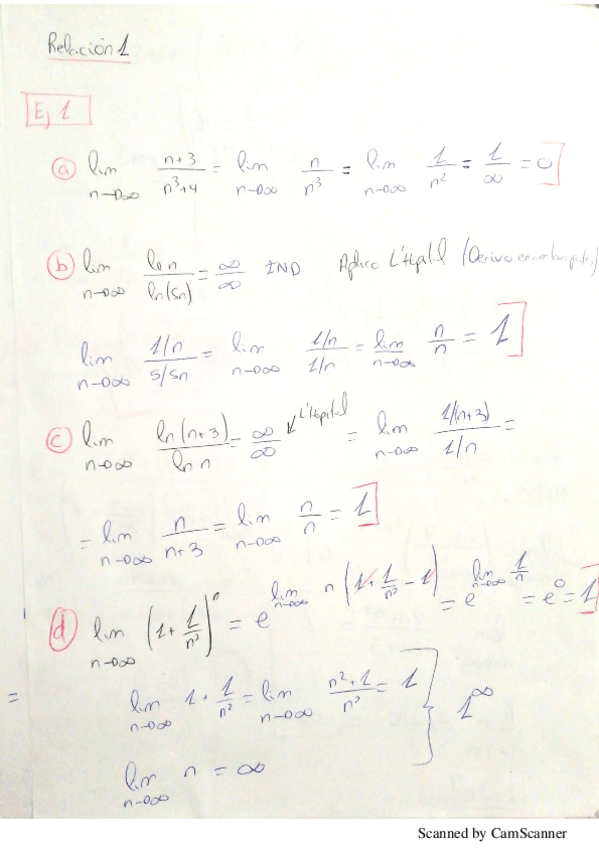 Relación 1
Ej 1
a) lim n→∞ n+3/n³+4 = lim n→∞ n/n³ = lim n→∞ 1/n² = 1/∞ = 0
b) lim n→∞ ln n/ln(5n) = ∞/∞ IND Aplico L'Hopital (Derivo en ambas partes)
lim n→∞ 1/n / 5/5n = lim n→∞ 1/n / 1/n = lim n→∞ n/n = 1
c) lim n→∞ ln(n+3)/ln n = ∞/∞ ↙ L'Hopital = lim n→∞ 1/(n+3) / 1/n =
= lim n→∞ n/n+3 = lim n→∞ n/n = 1
d) lim n→∞ (1+1/n²)^n = e^(lim n→∞ n(1+1/n²-1)) = e^(lim n→∞ 1/n) = e^0 = 1
= lim n→∞ 1+1/n² = lim n→∞ n²+1/n² = 1 } 1^∞
lim n→∞ n = ∞
Scanned by CamScanner